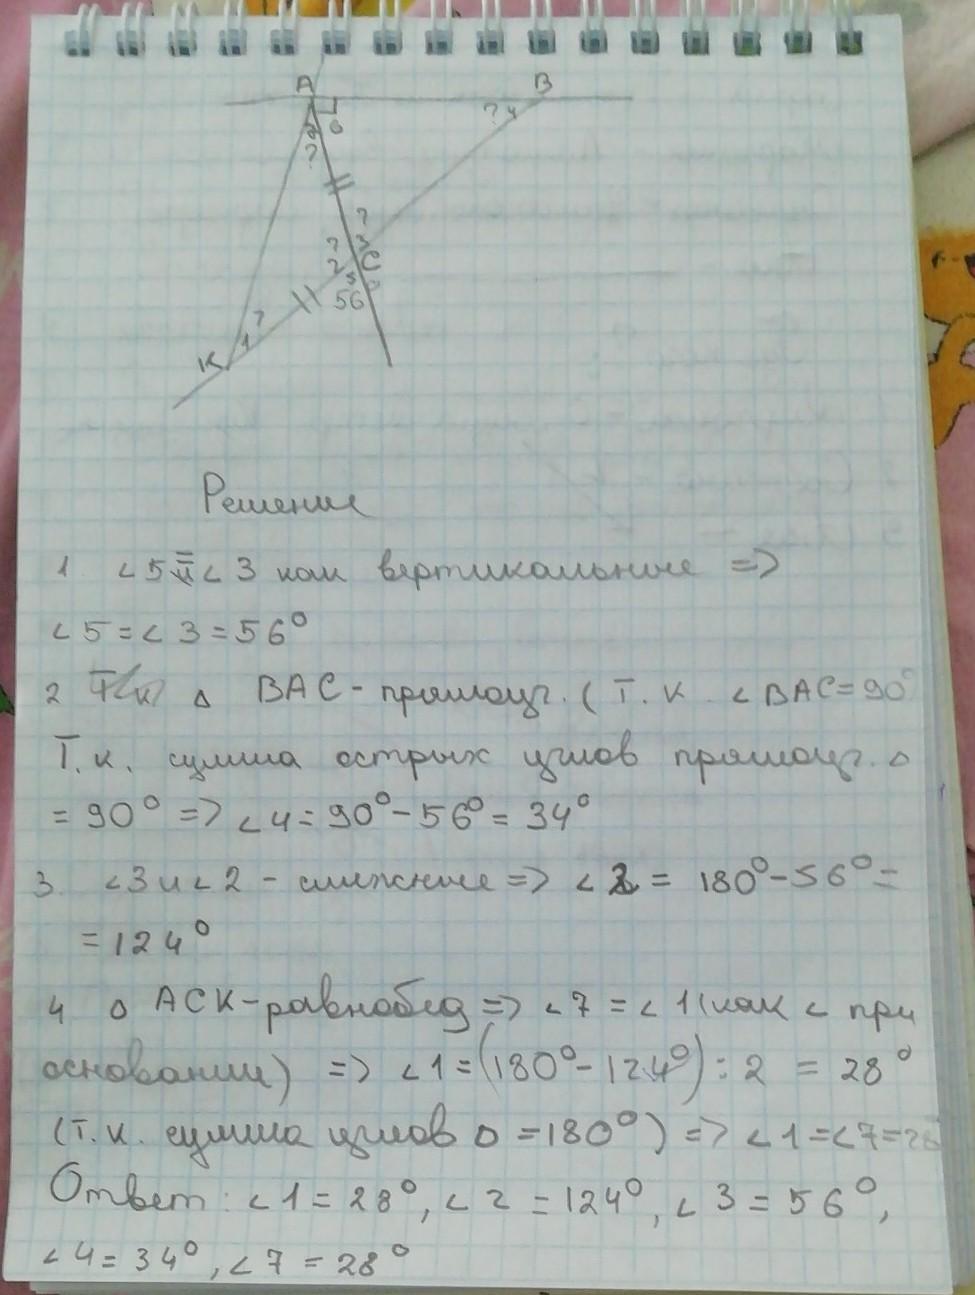 A B
6 ? 4
7
?
?
? 3 C
2
5
56°
?
K 1
Решение
1 ∠5 = ∠3 как вертикальные =>
∠5 = ∠3 = 56°
2 △ BAC - прямоуг. (Т. К. ∠BAC = 90°
Т. к. сумма острых углов прямоуг. △
= 90° => ∠4 = 90° - 56° = 34°
3. ∠3 и ∠2 - смежные => ∠2 = 180° - 56° =
= 124°
4 △ ACK - равнобед => ∠7 = ∠1 (как ∠ при
основании) => ∠1 = (180° - 124°) : 2 = 28°
(т. к. сумма углов △ = 180°) => ∠1 = ∠7 = 28
Ответ: ∠1 = 28°, ∠2 = 124°, ∠3 = 56°,
∠4 = 34°, ∠7 = 28°